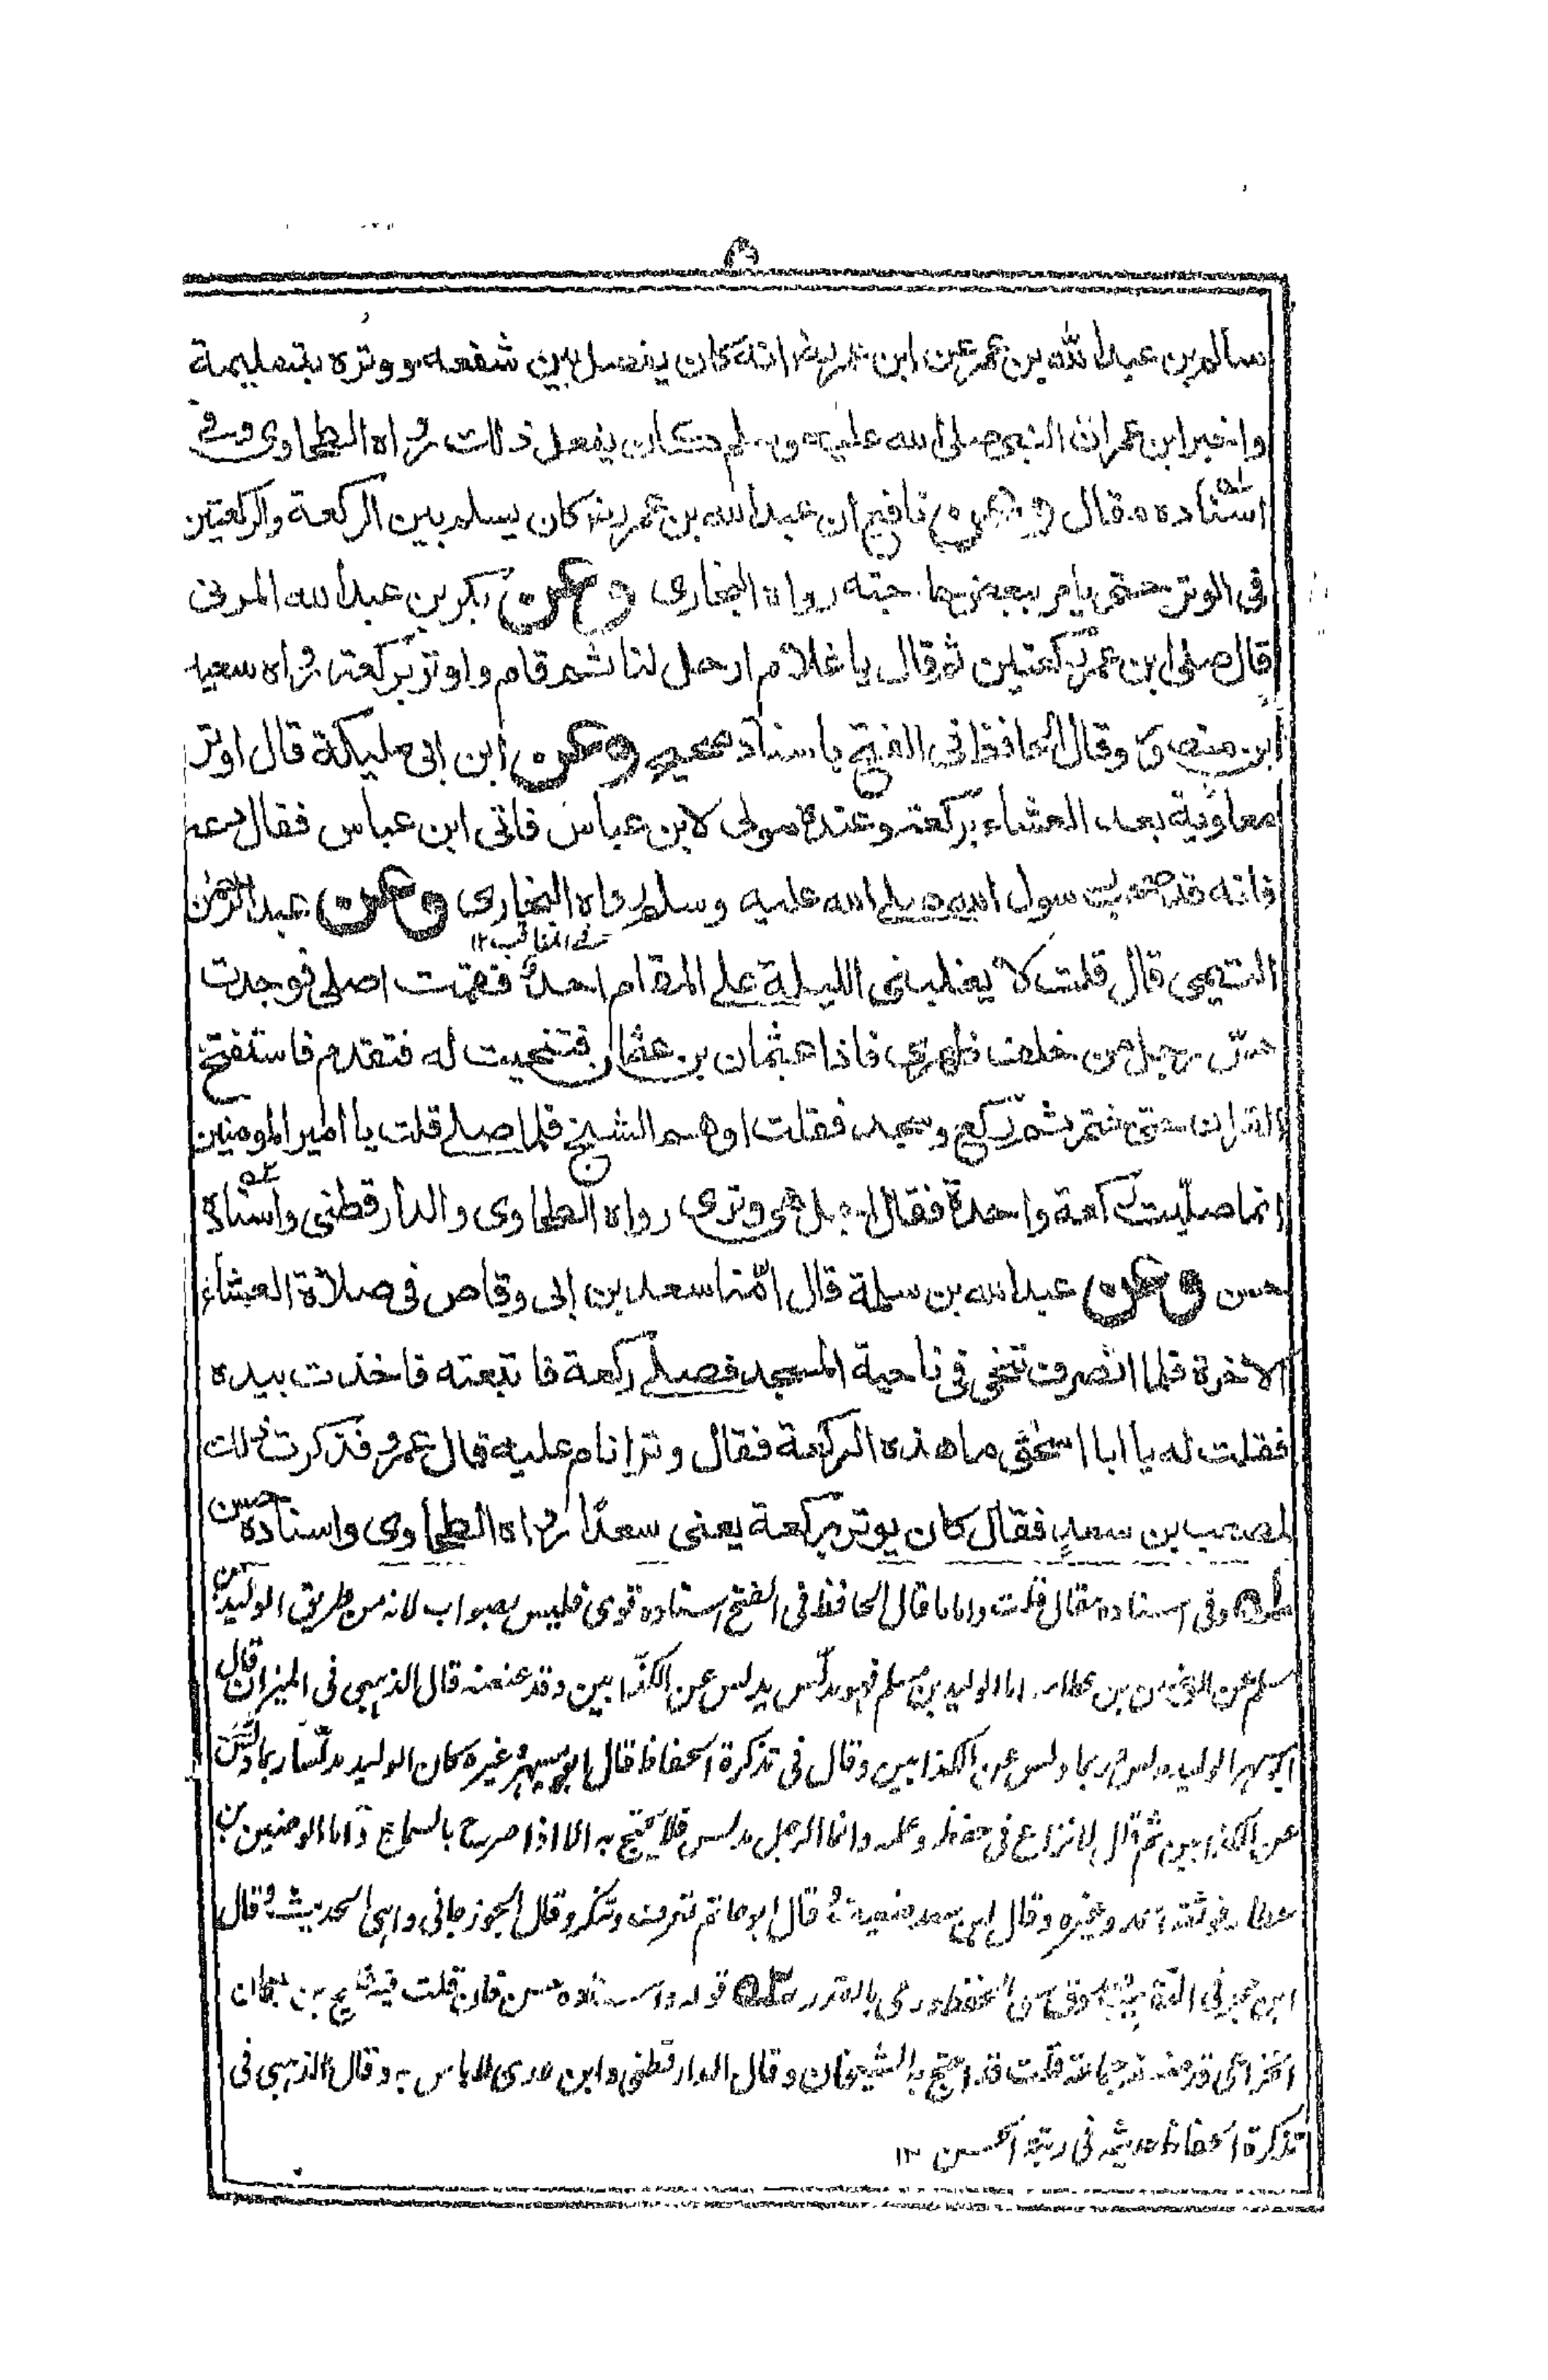 ٨
سالم بن عبدالله بن عمر عن ابن عمر رض انه كان يفصل بين شفعه ووتره بتسليمة
واخبر ابن عمر ان النبى صلى الله عليه وسلم كان يفعل ذلك رواه الطحاوى وفى
اسناده مقال وعن نافع ان عبدالله بن عمر رض كان يسلم بين الركعة والركعتين
فى الوتر حتى يامر ببعض حاجته رواه البخارى وعن بكر بن عبدالله المزنى
قال صلى ابن عمر ركعتين ثم قال يا غلام ارحل لنا ثم قام واوتر بركعة رواه سعيد
ابن منصور وقال الحافظ فى الفتح باسناد صحيح وعن ابن ابى مليكة قال اوتر
معاوية بعد العشاء بركعة وعنده مولى لابن عباس فاتى ابن عباس فقال دعه
فانه قد صحب رسول الله صلى الله عليه وسلم رواه البخارى وعن عبدالرحمٰن
فى المناقب ١٢
التيمى قال قلت لا يغلبنى الليلة على المقام احد فقمت اصلى فوجدت
حس رجل من خلف ظهرى فاذا عثمان بن عفان فتنحيت له فتقدم فاستفتح
القران حتى ختم ثم ركع وسجد فقلت اوهم الشيخ فلما صلى قلت يا امير المومنين
انما صليت ركعة واحدة فقال اجل هى وترى رواه الطحاوى والدارقطنى واسناده
حسن وعن عبدالله بن سلمة قال امّنا سعد بن ابى وقاص فى صلاة العشاء
الاخرة فلما انصرف تنحى فى ناحية المسجد فصلى ركعة فاتبعته فاخذت بيده
فقلت له يا ابا اسحٰق ما هذه الركعة فقال وتر انام عليه قال عمرو فذكرت ذلك
لمصعب بن سعد فقال كان يوتر بركعة يعنى سعدًا رواه الطحاوى واسناده حسن
له وفى اسناده مقال قلت واما ما قال الحافظ فى الفتح اسناده قوى فليس بصواب لانه من طريق الوليد بن
مسلم عن الوضين بن عطاء اما الوليد بن مسلم فهو مدلّس يدلس عن الكذّابين وقد عنعنه قال الذهبى فى الميزان قال
ابو مسهر الوليد مدلس ربما دلس عن الكذابين وقال فى تذكرة الحفاظ قال ابو مسهر وغيره كان الوليد مدلّسا ربما دلّس
عن الكذابين ثم قال لا نزاع فى حفظه وعلمه وانما الرجل مدلس فلا يحتج به الا اذا صرح بالسماع واما الوضين بن
عطاء فوثقه احمد وغيره وقال ابن سعد ضعيف وقال ابو حاتم تعرف وتنكر وقال الجوزجانى واهى الحديث وقال
ابن حجر فى التقريب صدوق سئ الحفظ ورمى بالقدر ٢ه قوله واسناده حسن فان قلت فيه فليح بن سليمان
الخزاعى وقد ضعفه جماعة قلت قد احتج به الشيخان وقال الدارقطنى وابن عدى لا باس به وقال الذهبى فى
تذكرة الحفاظ حديثه فى رتبة الحسن ١٢